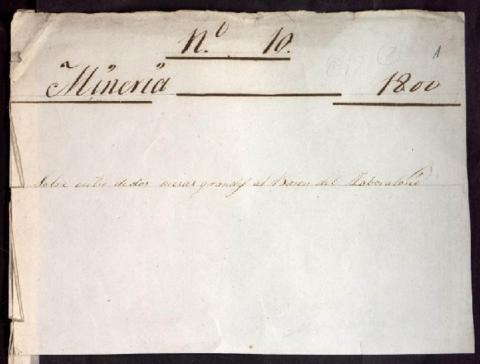 N.º 10.
Mineria 1800
Sobre de dos mesas grandes al del Laboratorio